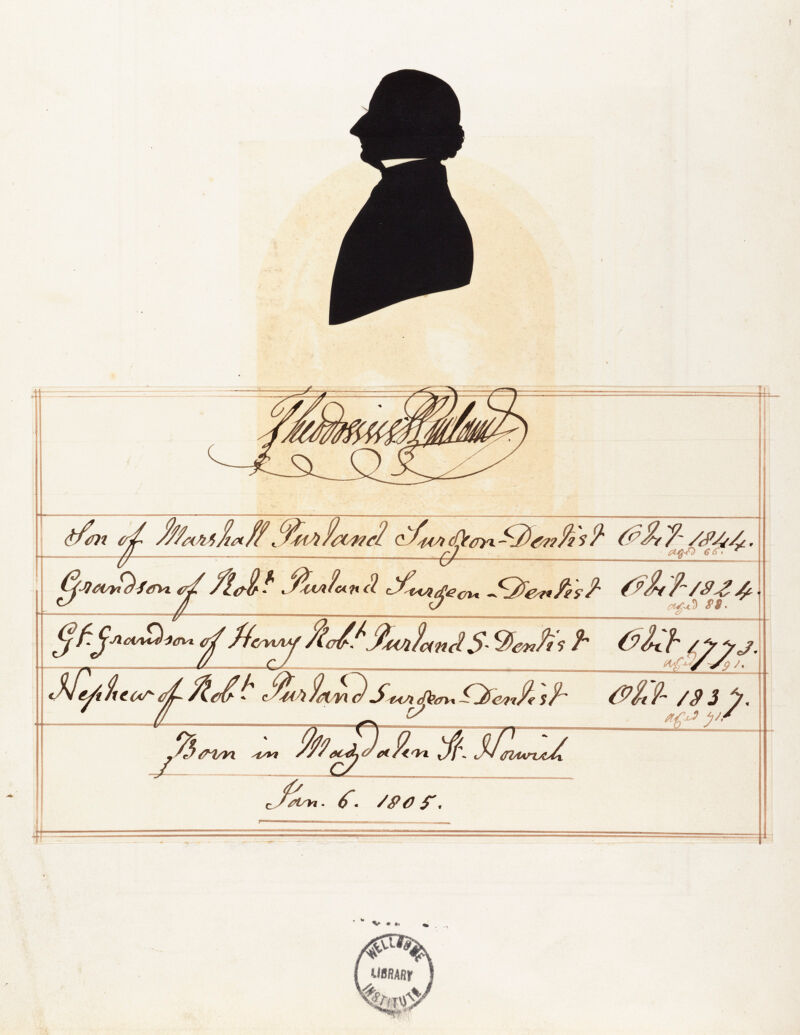 Theodosius Purland.
Son of Marshall Purland Surgeon-Dentist Obit 1844.
aged 66.
Grandson of Robt. Purland Surgeon-Dentist Obit 1824.
aged 88.
Gt. Grandson of Henry Robt. Purland S. Dentist Obit 1773.
aged 91.
Nephew of Robt. Purland Surgeon-Dentist Obit 1837.
aged 71.
Born in Magdalen St. Norwich
Jan. 6. 1805.
WELLCOME
LIBRARY
INSTITUTE